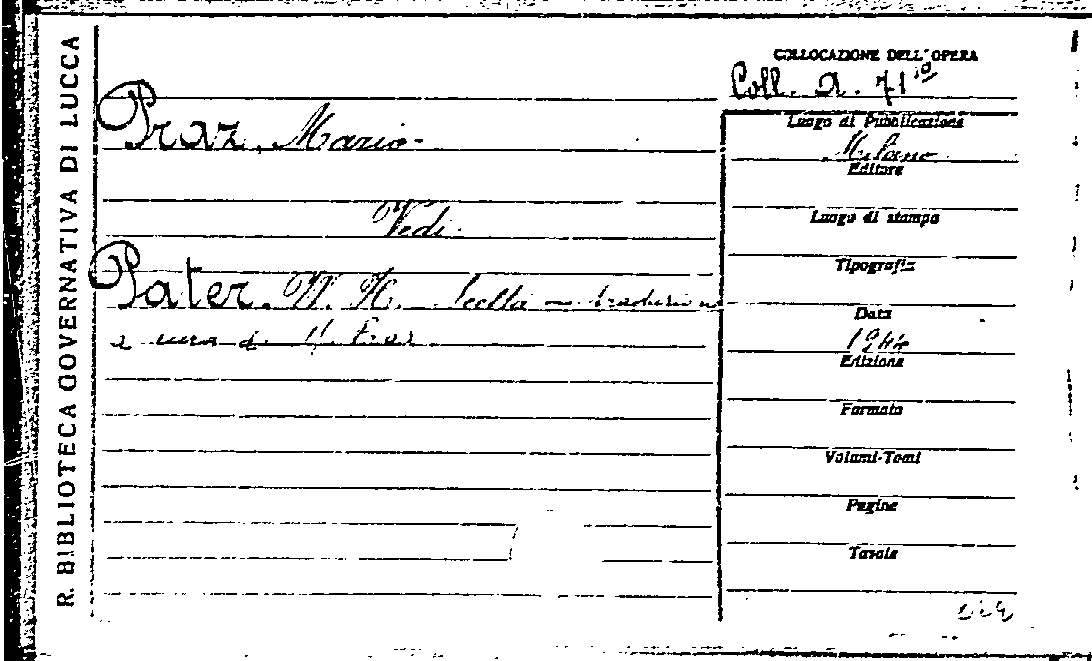 R. BIBLIOTECA GOVERNATIVA DI LUCCA
COLLOCAZIONE DELL'OPERA
Coll. A. 71
Praz, Mario-
Vedi.
Pater. W. H. Scelta e traduzione
a cura di M. Praz
Luogo di Pubblicazione
Milano
Editore
Luogo di stampa
Tipografia
Data
1944
Edizione
Formato
Volumi-Tomi
Pagine
Tavole